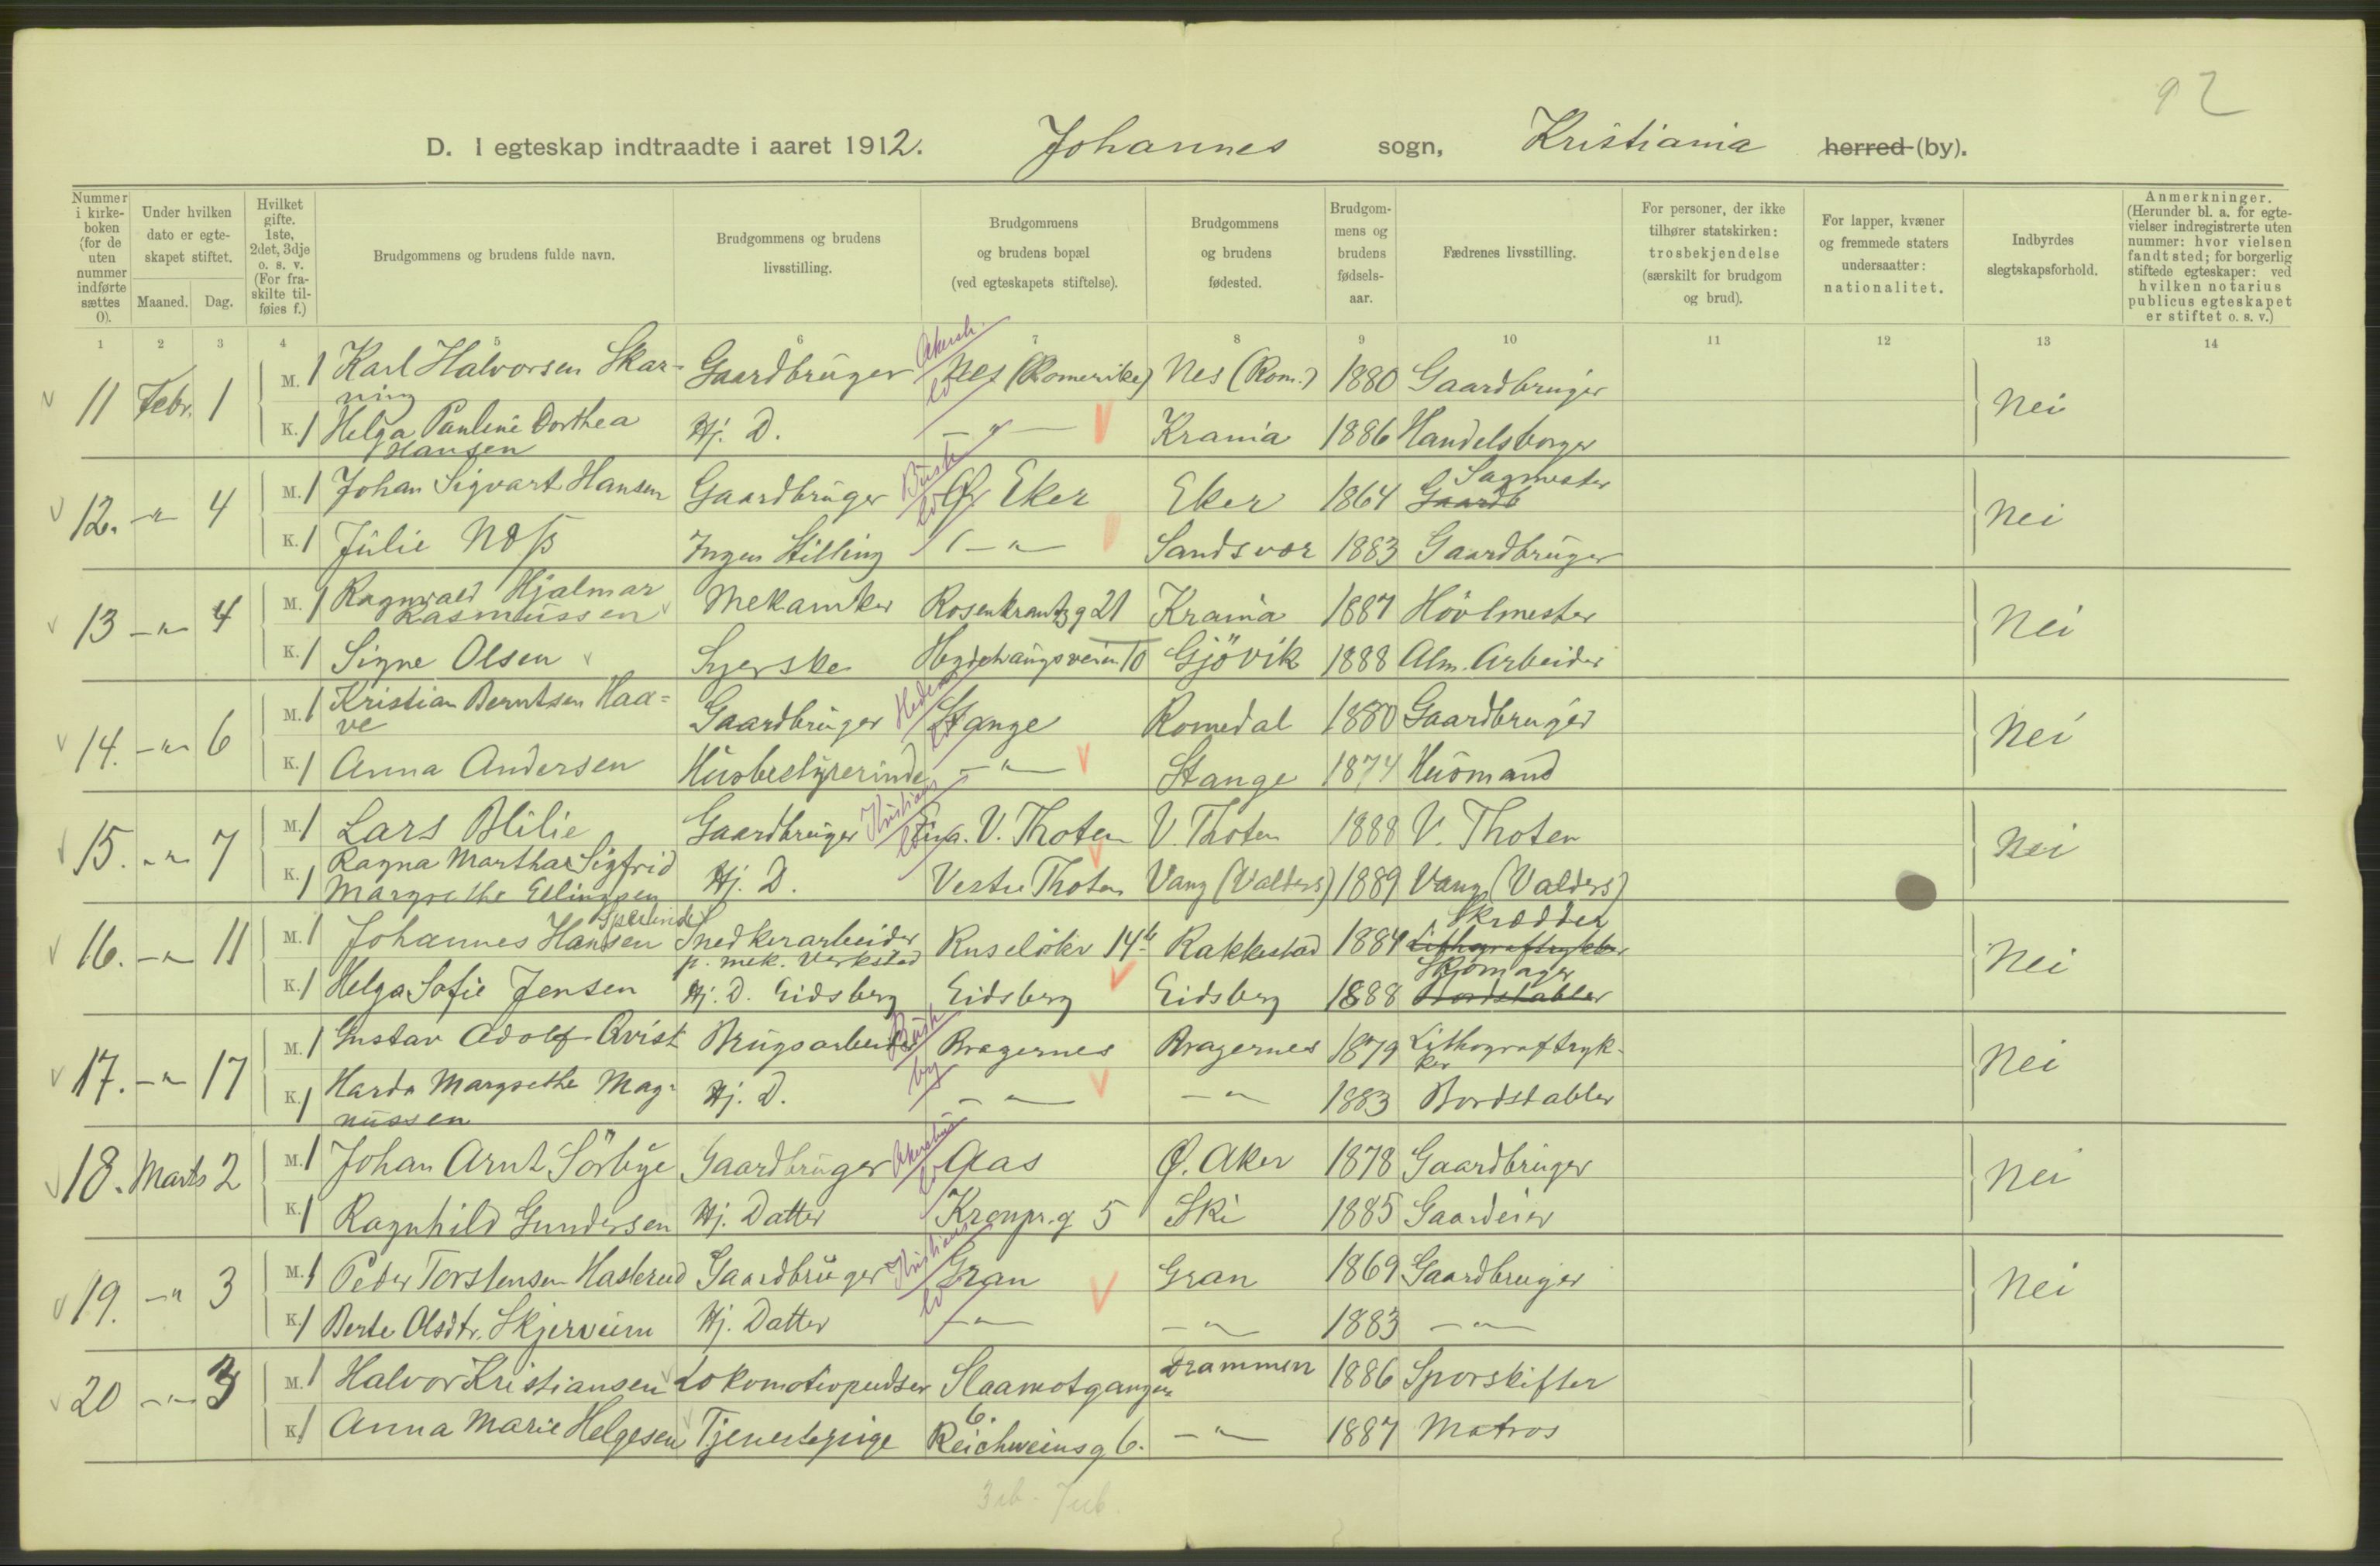 92
D. I egteskap indtraadte i aaret 1912. Johannes sogn, Kristiania herred (by).
Nummer i kirkeboken (for de uten nummer indførte sættes 0).
Under hvilken dato er egteskapet stiftet.
Maaned. Dag.
Hvilket gifte. 1ste, 2det, 3dje o. s. v. (For fraskilte tilføies f.)
Brudgommens og brudens fulde navn.
Brudgommens og brudens livsstilling.
Brudgommens og brudens bopæl (ved egteskapets stiftelse).
Brudgommens og brudens fødested.
Brudgommens og brudens fødselsaar.
Fædrenes livsstilling.
For personer, der ikke tilhører statskirken: trosbekjendelse (særskilt for brudgom og brud).
For lapper, kvæner og fremmede staters undersaatter: nationalitet.
Indbyrdes slegtskapsforhold.
Anmerkninger. (Herunder bl. a. for egtevielser indregistrerte uten nummer: hvor vielsen fandt sted; for borgerlig stiftede egteskaper: ved hvilken notarius publicus egteskapet er stiftet o. s. v.)
1 2 3 4 5 6 7 8 9 10 11 12 13 14
11 Febr. 1 M. 1 Karl Halvorsen Skarning Gaardbruger Akersh. ld Nes (Romerike) Nes (Rom.) 1880 Gaardbruger Nei
K. 1 Helga Pauline Dorthea Hansen Hj. D. -"- Krania 1886 Handelsborger
12. -"- 4 M. 1 Johan Sigvart Hansen Gaardbruger Busk ld Ø. Eker Eker 1864 Sagmester Gaardb Nei
K. 1 Julie Næss Ingen Stilling -"- Sandsvær 1883 Gaardbruger
13 -"- 4 M. 1 Ragnvald Hjalmar Rasmussen Mekaniker Rosenkrantzg 21 Krania 1887 Hövlmester Nei
K. 1 Signe Olsen Syerske Hegdehaugsveien 10 Gjövik 1888 Alm. Arbeider
14. -"- 6 M. 1 Kristian Berntsen Haave Gaardbruger Hedem ld Stange Romedal 1880 Gaardbruger Nei
K. 1 Anna Andersen Husbestyrerinde -"- Stange 1874 Husmand
15. -"- 7 M. 1 Lars Blilie Gaardbruger Kristians ld Eina. V. Thoten V. Thoten 1888 V. Thoten Nei
K. 1 Ragna Martha Sigfrid Margrethe Ellingsen Hj. D. Vestre Thoten Vang (Valders) 1889 Vang (Valders)
16. -"- 11 M. 1 Johannes Hansen Snedkerarbeider p. mek. Verksted Ruselökv 14 b Rakkestad 1884 Skrædder Lithograftrykker Nei
K. 1 Helga Sofie Jensen Hj. D. Eidsberg Eidsberg Eidsberg 1888 Skomager Bordstabler
17. -"- 17 M. 1 Gustav Adolf Qvist Brugsarbeider Busk by Bragernes Bragernes 1879 Lithograftrykker Nei
K. 1 Harda Margrethe Magnussen Hj. D. -"- -"- 1883 Bordstabler
18. Marts 2 M. 1 Johan Arnt Sörbye Gaardbruger Akershus ld Aas Ø. Aker 1878 Gaardbruger Nei
K. 1 Ragnhild Gundersen Hj. Datter Kronpr.g 5 Ski 1885 Gaardeier
19. -"- 3 M. 1 Peder Torstensen Haslerud Gaardbruger Kristians ld Gran Gran 1869 Gaardbruger Nei
K. 1 Berte Olsdtr. Skjerveim Hj. Datter -"- -"- 1883 -"-
20 -"- 3 M. 1 Halvor Kristiansen Lokomotivpudser Slaamotgangen 6. Drammen 1886 Sporskifter
K. 1 Anna Marie Helgesen Tjenestepige Reichweinsg 6. -"- 1887 Matros